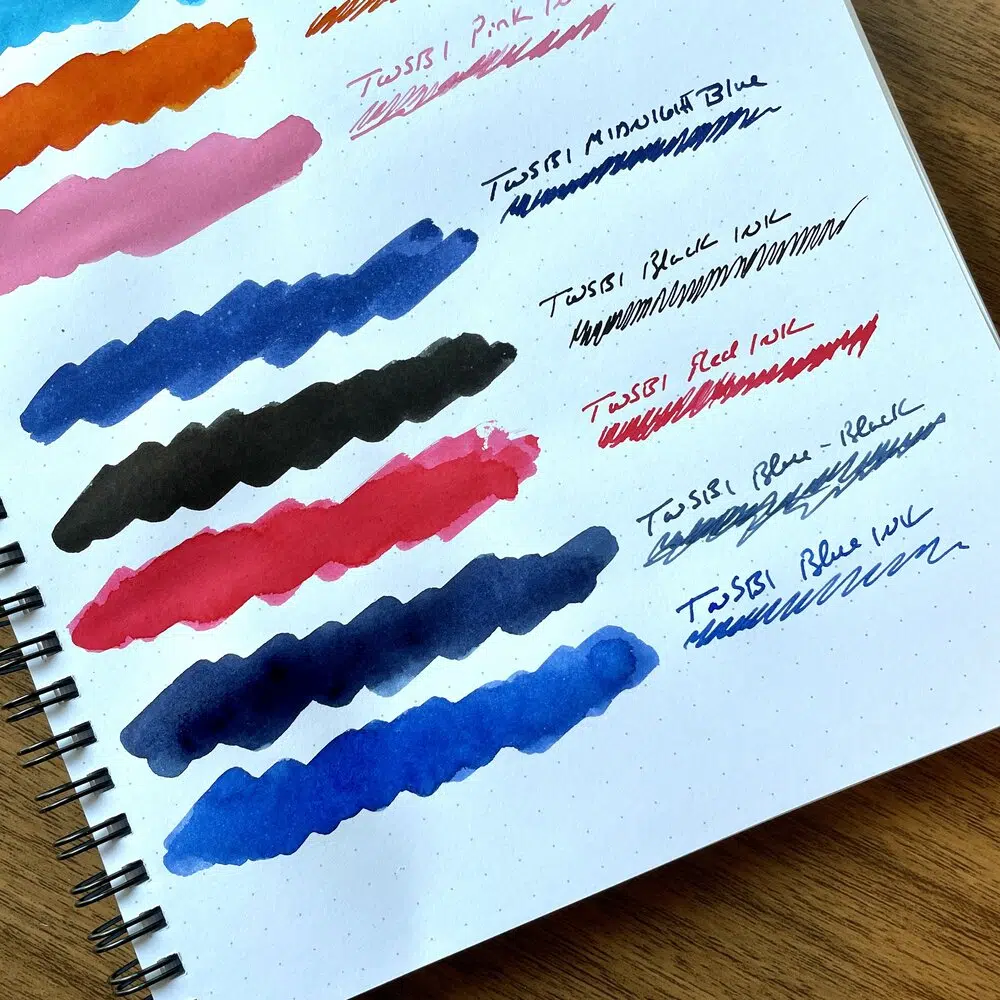 TWSBI Pink
TWSBI MIDNIGHT Blue
TWSBI Black INK
TWSBI Red INK
TWSBI Blue-Black
TWSBI Blue INK